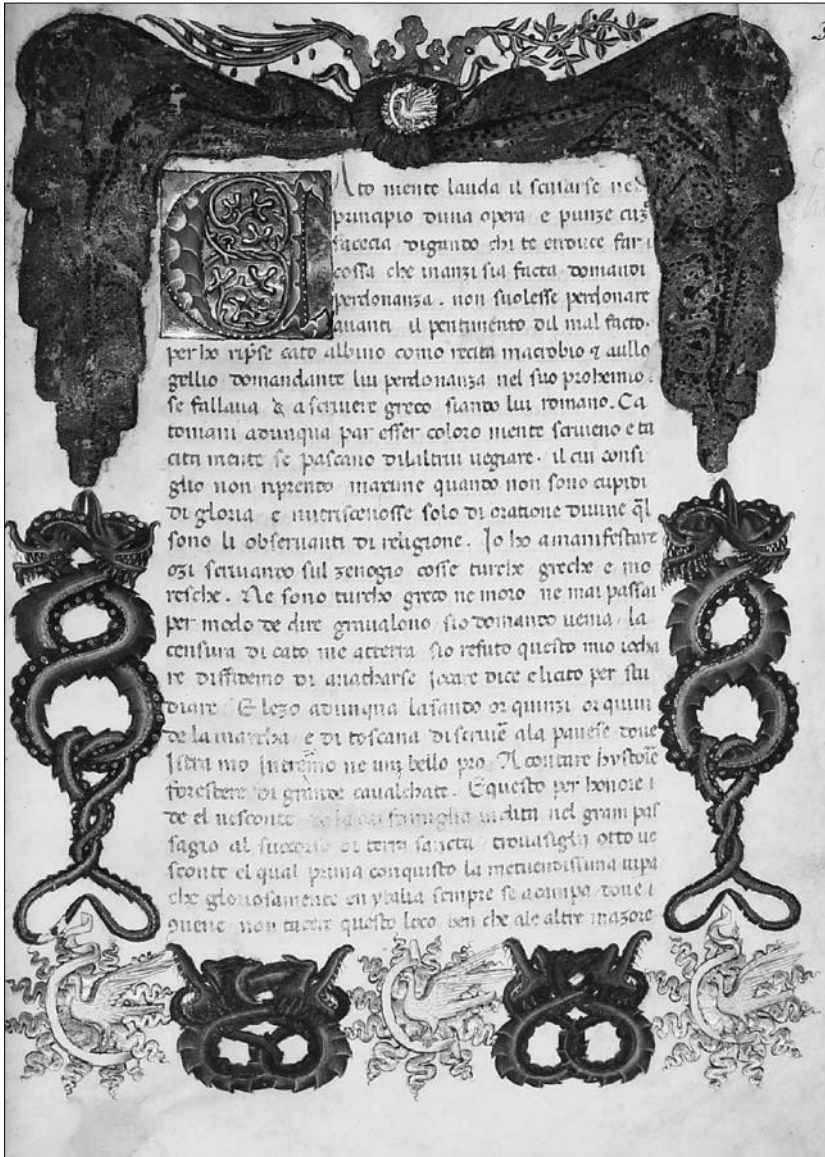 C Ato mente lauda il scusarse nel
principio duna opera e punze cuz
facecia digando chi te enduce far i
cossa che inanzi sia facta domandi
perdonanza . non suolesse perdonare
auanti il pentimento dil mal facto .
per ho ripse cato albino como recita macrobio & aullo
gellio domandante lui perdonanza nel suo prohemio
se fallaua & a scriuere greco siando lui romano . Ca
toniani adunqua par esser coloro mente scriueno e ta
citi mente se pascano dilaltrui uegiare . il cui consi
glio non riprendo maxime quando non sono cupidi
di gloria e nutriscenosse solo di oratione diuine q̃l
sono li obseruanti di religione . Io ho a manifestare
ozi scriuando sul zenogio cosse turche greche e mo
resche . Ne sono turcho greco ne moro ne mai passai
per modo de dire sio domando uenia la
censura di cato me atterra sio refuto questo mio iocha
re diffidemo di anacharse iocare dice e licito per stu
diare E lezo adunqua lasando or quinzi or quiui
de la marcha e di toscana di scriuẽ ala pauese doue
ne un bello pro . Il contare hystorie
forestere di grande caualchate . E questo per honore
de el uesconte famiglia nel gram pas
sagio al succorso di terra sancta trouasiglu otto ue
sconte el qual prima conquisto la metuendissima uipa
che gloriosamente en ytalia sempre se acimpa doue
quene non tacere questo loco ben che ale altre mazore